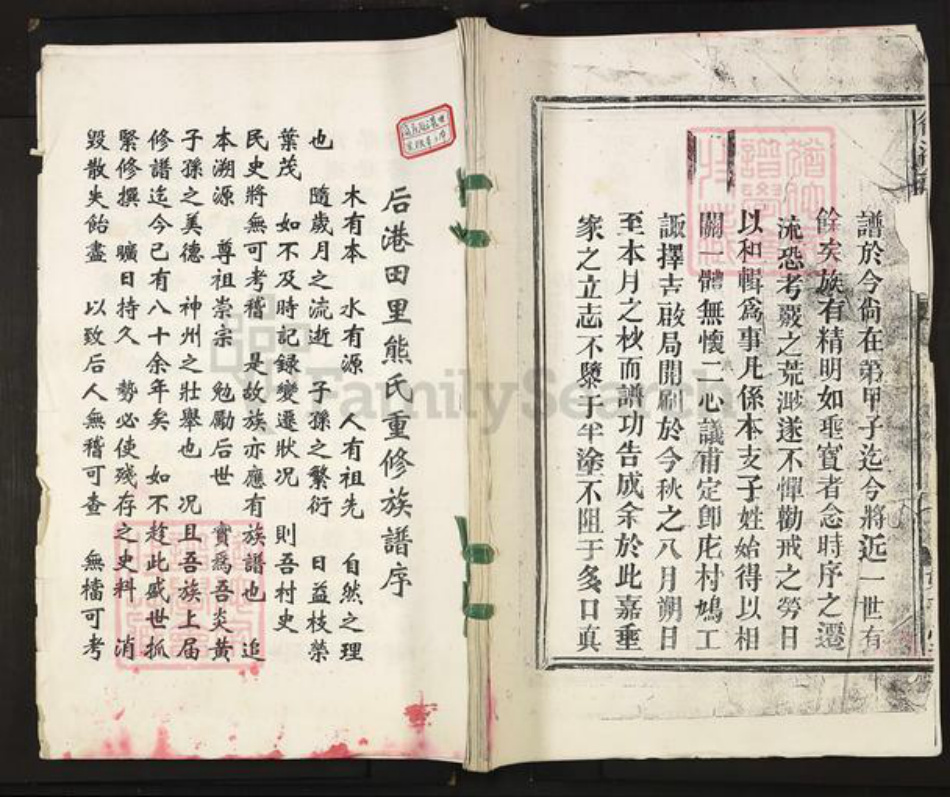 譜於今尙在第甲子迄今將近一世有
餘矣族有精明如聖實者念時序之遷
流恐考覈之荒渺遂不憚勸戒之勞日
以和輯爲事凡係本支子姓始得以相
關一體無懷二心議甫定卽庀村鳩工
諏擇吉啟局開刷於今秋之八月朔日
至本月之秒而譜功告成余於此嘉垂
家之立志不隳于半塗不阻于多口真
后港田里熊氏重修族譜序
木有本 水有源 人有祖先 自然之理
也 隨歲月之流逝 子孫之繁衍 日益枝榮
葉茂 如不及時記録變遷狀况 則吾村史
民史將無可考稽 是故族亦應有族譜也 追
本溯源 尊祖崇宗 勉勵后世 實爲吾炎黄
子孫之美德 神州之壯舉也 况且吾族上届
修譜迄今已有八十余年矣 如不趁此盛世抓
緊修撰 曠日持久 勢必使殘存之史料 消
毀散失飴盡 以致后人無稽可查 無檔可考
FamilySearch